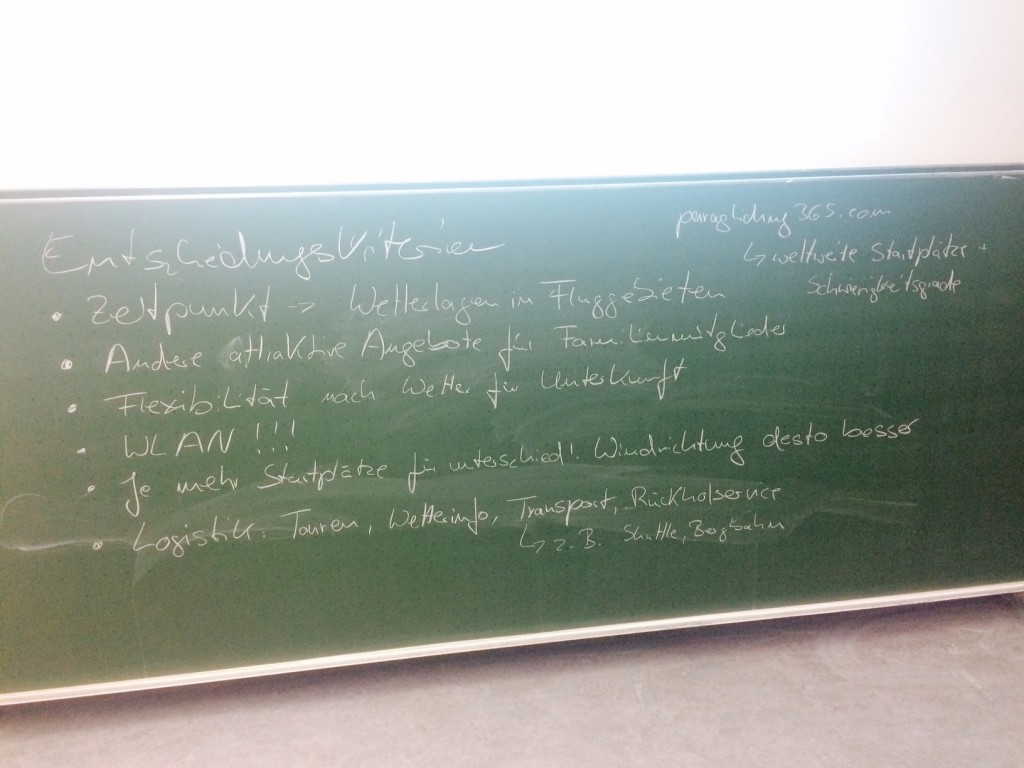 Entscheidungskriterien
• Zeitpunkt -> Wetterlagen in Fluggebieten
• Andere attraktive Angebote für Familienmitglieder
• Flexibilität nach Wetter für Unterkunft
• WLAN !!!
• Je mehr Startplätze für unterschiedl. Windrichtung desto besser
• Logistik: Touren, Wetterinfo, Transport, Rückholservice
↳ z.B. Shuttle, Bergbahn
paragliding365.com
↳ weltweite Startplätze +
Schwierigkeitsgrade